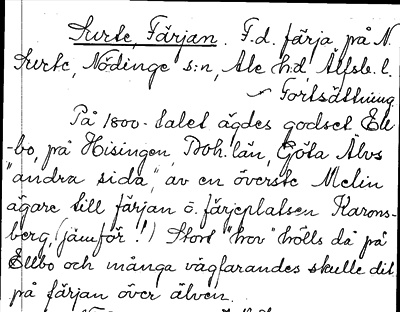 Surte, Färjan. F.d. färja på N.
Surte, Nödinge s:n, Ale h.d, Älfsb. l.
Fortsättning.
På 1800-talet ägdes godset Ell-
-bo, på Hisingen, Boh. län, Göta Älvs
"andra sida", av en överste Melin
ägare till färjan o. färjeplatsen Karons-
berg, (jämför!) Stort "hov" hölls då på
Ellbo och många vägfarandes skulle dit
på färjan över älven.